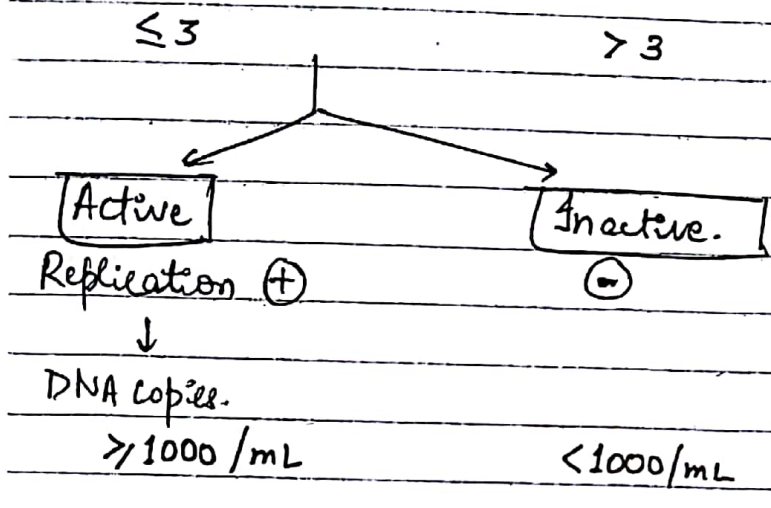 ≤3 >3
Active Inactive.
Replication (+) (-)
↓
DNA copies.
≥1000/mL <1000/mL